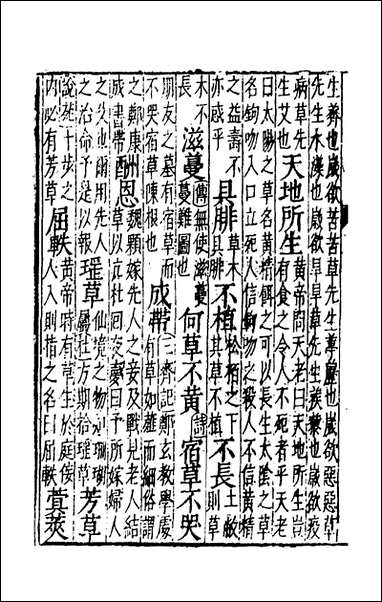 生薺也嵗欲苦苦草先生葶藶也嵗欲惡惡草
先生水藻也嵗欲旱旱草先生蒺藜也嵗欲疫
病草先生艾也天地所生黃帝問天老曰天地所生豈有食之令人不死者乎天老
曰太陽之草名黃精餌之可以長生太陰之草
名鉤吻入口立死人信鉤吻之殺人不信黃精
之益壽不亦惑乎具腓草木具腓不植松栢之下其草不植不長土敝則草
木不長滋蔓傳無使滋蔓蔓難圖也何草不黃詩宿草不哭
朋友之墓有宿草而不哭宿草陳根也成帶三齊記鄭玄教學處有草如薤而細俗謂
之鄭康成書帶酬恩魏顆嫁先人之妾及戰見老人結草以亢杜回夜夢曰予所嫁婦人
之父也爾用先人之治命予是以報瑶草仙境之物珊瑚屬杜方期拾瑶草芳草
説苑十步之内必有芳草屈軼黃帝時有草生於庭佞人入則指之名曰屈軼蓂莢